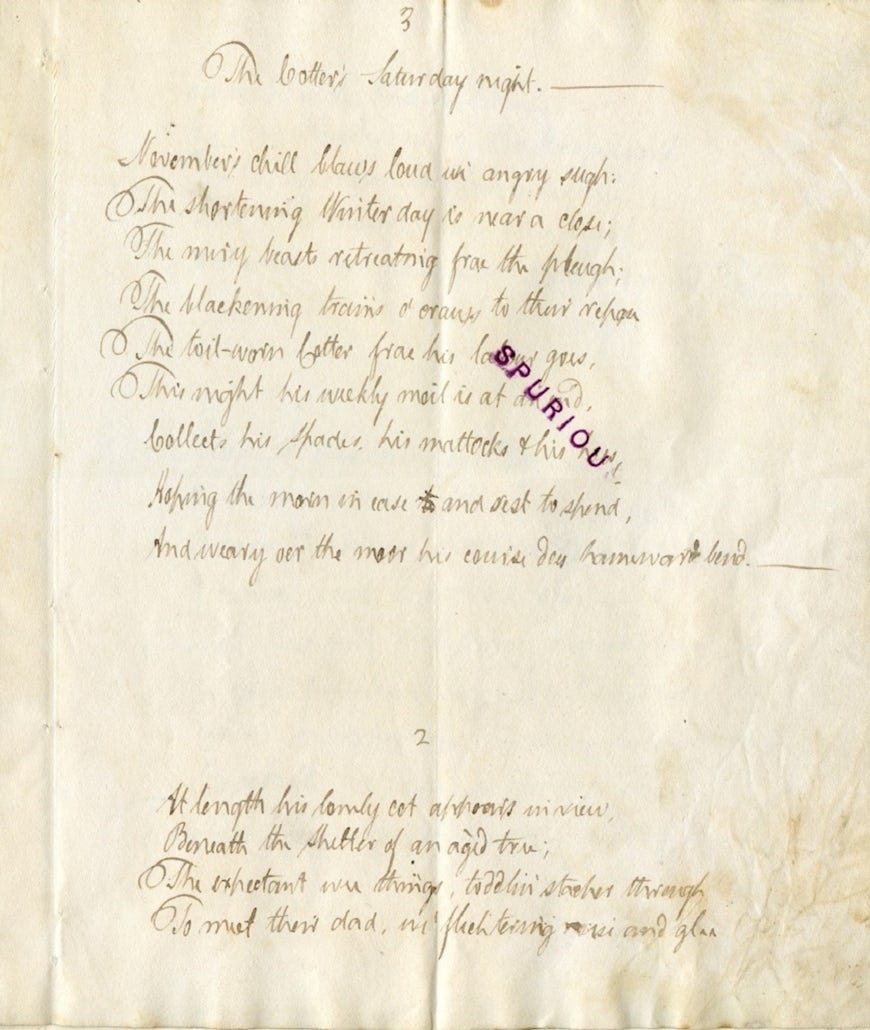 3
The Cotter's Saturday night.
November's chill blaws loud wi' angry sugh:
The shortening Winter day is near a close;
The miry beasts retreating frae the pleugh;
The blackening trains o' craws to their repose
The toil-worn Cotter frae his labour goes,
This night his weekly moil is at an end,
Collects his spades, his mattocks & his hoes,
Hoping the morn in ease to and rest to spend,
And weary oer the moor his course does hameward bend.
SPURIOU
2
At length his lonely cot appears in view,
Beneath the shelter of an aged tree;
The expectant wee things, toddlin' stacher through
To meet their dad, wi' flichtering and glee